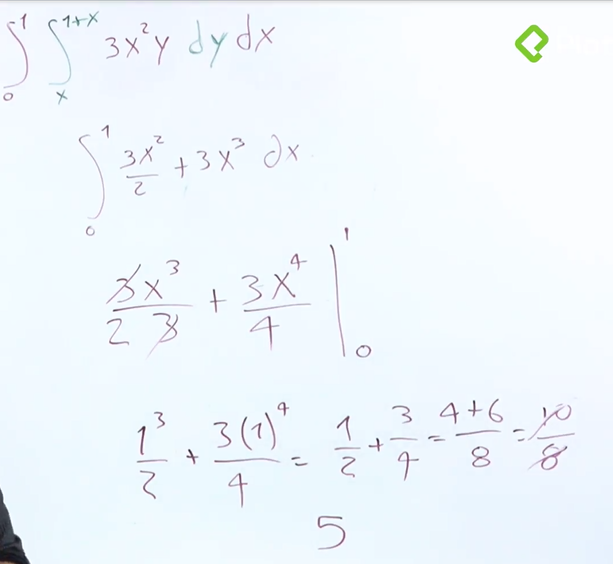 ∫₀¹ ∫ₓ¹⁺ˣ 3x²y dy dx
∫₀¹ 3x²/2 + 3x³ dx
3x³/2 3 + 3x⁴/4 |₀¹
1³/2 + 3(1)⁴/4 = 1/2 + 3/4 = 4+6/8 = 10/8
5